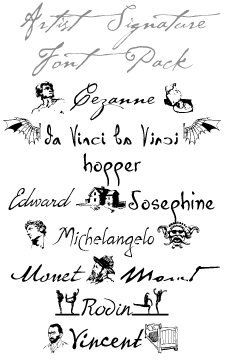 Artist Signature
Font Pack
Cezanne
da Vinci da Vinci
hopper
Edward Josephine
Michelangelo
Monet Monet
Rodin
Vincent